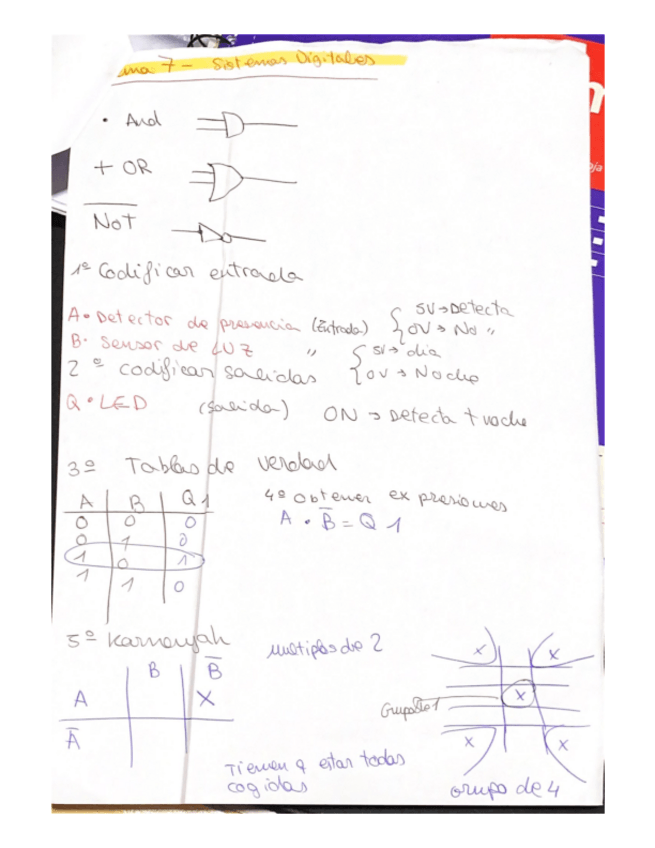 ma 7 - Sistemas Digitales
• And
+ OR
NOT
1º Codificar entrada
A• Detector de presencia (Entrada) { 5V→Detecta
0V→ No "
B• Sensor de LUZ " { 5V→ dia
0V→ Noche
2º codificar salidas
Q•LED (salida) ON → Detecta + noche
3º Tablas de verdad
A B Q1
0 0 0
0 1 0
1 0 1
1 1 0
4º obtener expresiones
A • B̅ = Q1
5º Karnougah
multiplos de 2
B B̅
A X
A̅
x x
Grupo de 1 x
x x
Tienen q estar todas
cogidas
grupo de 4